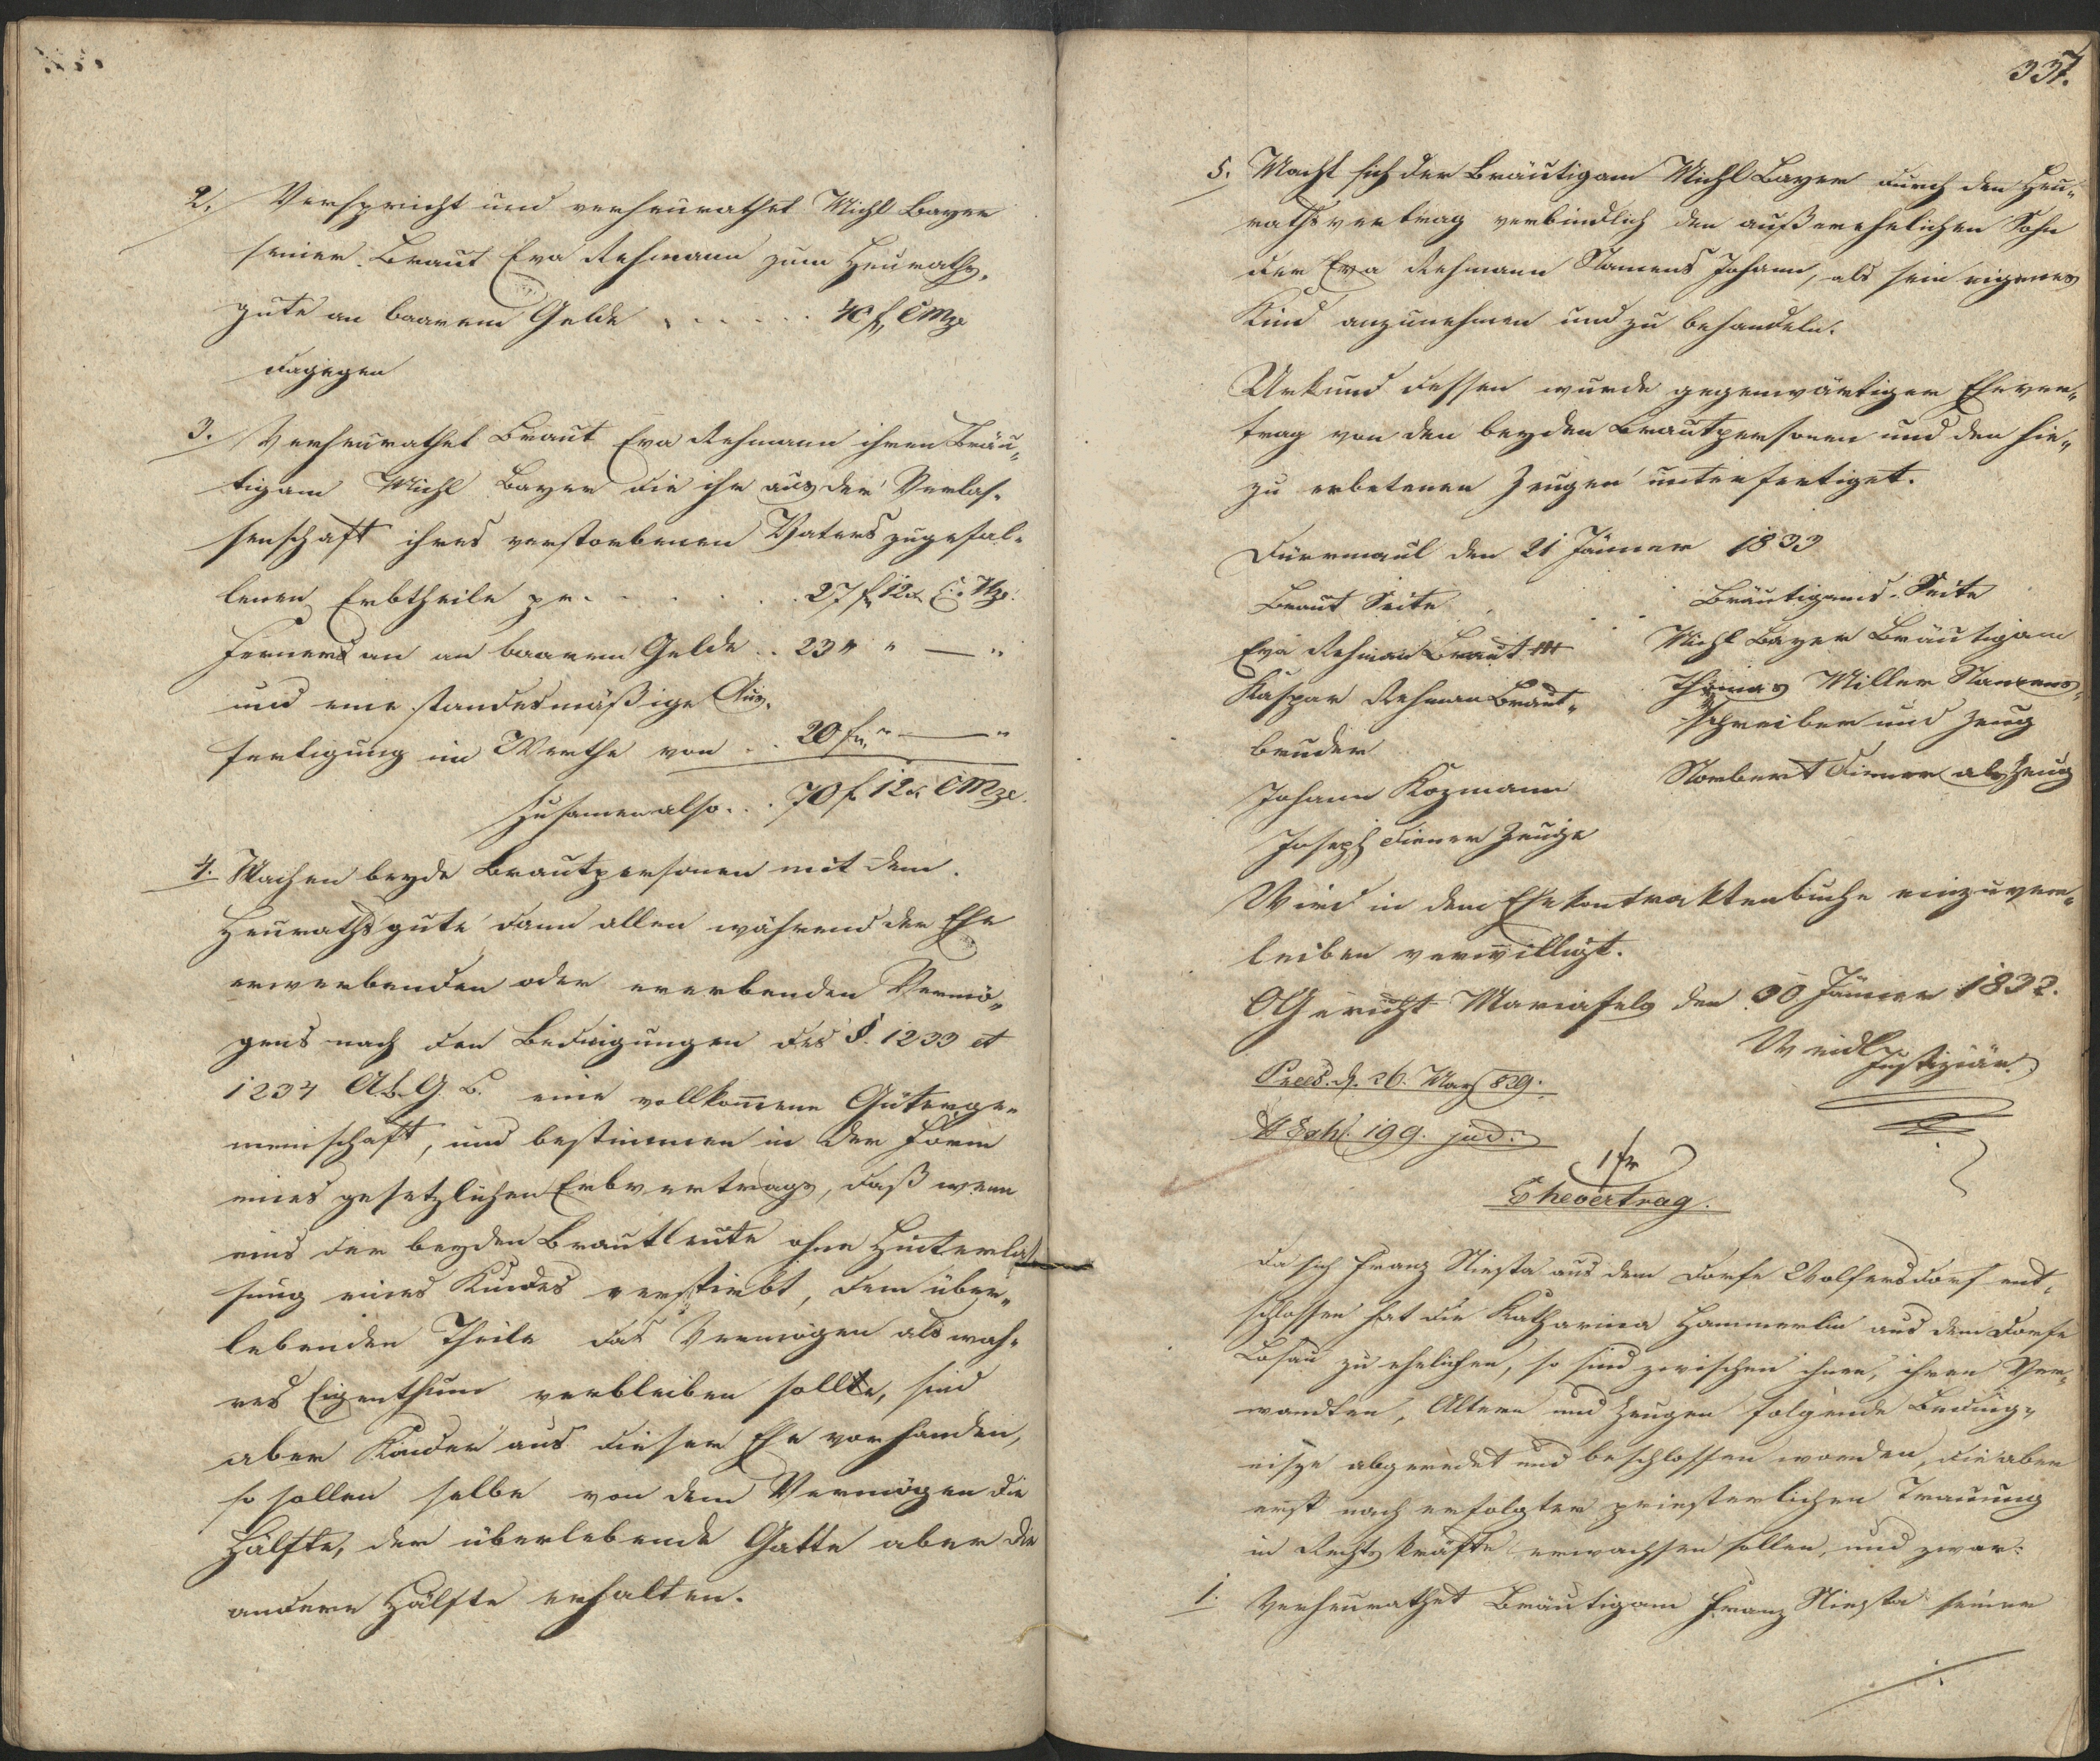 2. Verspricht und verheurathet Michl Bayer
seiner Braut Eva Rehmann zum Heuraths-
gute an baarem Gelde . . . . . . 40 f CMze
dagegen
3. Verheurathet Braut Eva Rehmann ihren Bräu„
tigam Michl Bayer die ihr aus der Verlas-
senschaft ihres verstorbenen Vaters zugefal-
lenen Erbtheile pr. . . . . . 27 f 12 x C. Mze.
Ferners an an baarem Gelde . . 23 " " — "
und eine standesmäßige Aus-
fertigung im Werthe von . . 20 f " — "
Zusamen also . . . 70 f 12 x CMze.
4. Machen beyde Brautpersonen mit dem
Heurathsgute dann allen während der Ehe
erwerbenden oder ererbenden Vermö„
gens nach den Bedingungen des §. 1233 et
1234 A.b.G.B. eine vollkom̄ene Güterge„
meinschaft, und bestimmen in der Form
eines gesetzlichen Erbvertrags, daß wenn
eins der beyden Brautleute ohne Hinterlas-
sung eines Kindes verstirbt, dem über„
lebenden Theile das Vermögen als wah-
res Eigenthum verbleiben sollte, sind
aber Kinder aus dieser Ehe vorhanden,
so sollen selbe von dem Vermögen die
Hälfte, der überlebende Gatte aber die
andere Hälfte erhalten.
337.
5. Macht sich der Bräutigam Michl Bayer durch den Heu„
rathsvertrag verbindlich den außerehelichen Sohn
der Eva Rehmann Namens Johann, als sein eigenes
Kind anzunehmen und zu behandeln.
Urkund dessen wurde gegenwärtiger Ehever„
trag von den beyden Brautpersonen und den hie„
zu erbetenen Zeugen unterfertiget.
Dürrmaul den 21 Jänner 1833
Braut Seite
Bräutigams-Seite
Eva Rehman Braut +++
Michl Bayer Bräutigam
Kaspar Rehman Braut„
Thomas Miller Namens-
bruder
schreiber und Zeug
Johann Kozmann
Norbert Diener als Zeug
Joseph Diener Zeuge
Wird in dem Ehekontraktenbuche einzuver„
leiben verwilligt.
OGericht Mariafels den 30. Jänner 1832.
Weidl
Justiziär
Präs. d. 26. März 829.
N Exh. 199. jud.
1 fr
Ehevertrag.
Da sich Franz Niesta aus dem Dorfe Wolfersdorf ent-
schlossen hat die Katharina Hammerlin aus dem Dorfe
Losau zu ehelichen, so sind zwischen ihnen, ihren Ver-
wandten, Altern und Zeugen folgende Beding-
nisse abgeredet und beschlossen worden, die aber
erst nach erfolgter priesterlichen Trauung
in Rechtskräfte erwachsen sollen, und zwar:
1. Verheurathet Bräutigam Franz Niesta seiner